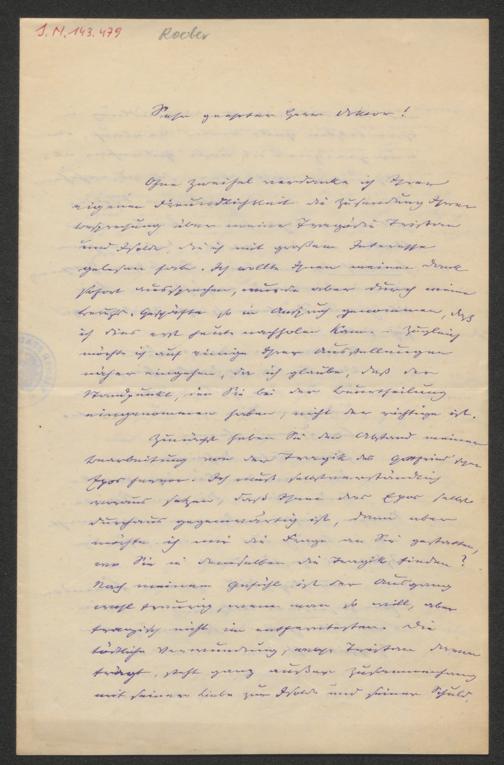 J.N. 143.479
Roeber
Sehr geehrter Herr Doktor!
Ohne Zweifel verdanke ich Ihrer
eigenen Freundlichkeit die Zusendung Ihrer
Besprechung über meine Tragödie Tristan
und Isolde, die ich mit großem Interesse
gelesen habe. Ich wollte Ihnen meinen Dank
sofort aussprechen, wurde aber durch meine
Berufs-Geschäfte so in Anspruch genommen, daß
ich dies erst heute nachholen kann. Zugleich
möchte ich auf einige Ihrer Ausstellungen
näher eingehen, da ich glaube, daß der
Standpunkt, den Sie bei der Beurtheilung
eingenommen haben, nicht der richtige ist.
Zunächst heben Sie den Abstand meiner
Bearbeitung von der Tragik des Gottfried'schen
Epos hervor. Ich muß selbstverständlich
voraus setzen, daß Ihnen das Epos selbst
durchaus gegenwärtig ist, dann aber
möchte ich mir die Frage an Sie gestatten,
wo Sie in demselben die Tragik finden?
Nach meinem Gefühl ist der Ausgang
wohl traurig, wenn man so will, aber
tragisch nicht im entferntesten. Die
tödtliche Verwundung, welche Tristan davon
trägt, steht ganz außer Zusammenhang
mit seiner Liebe zur Isolde und seiner Schuld.